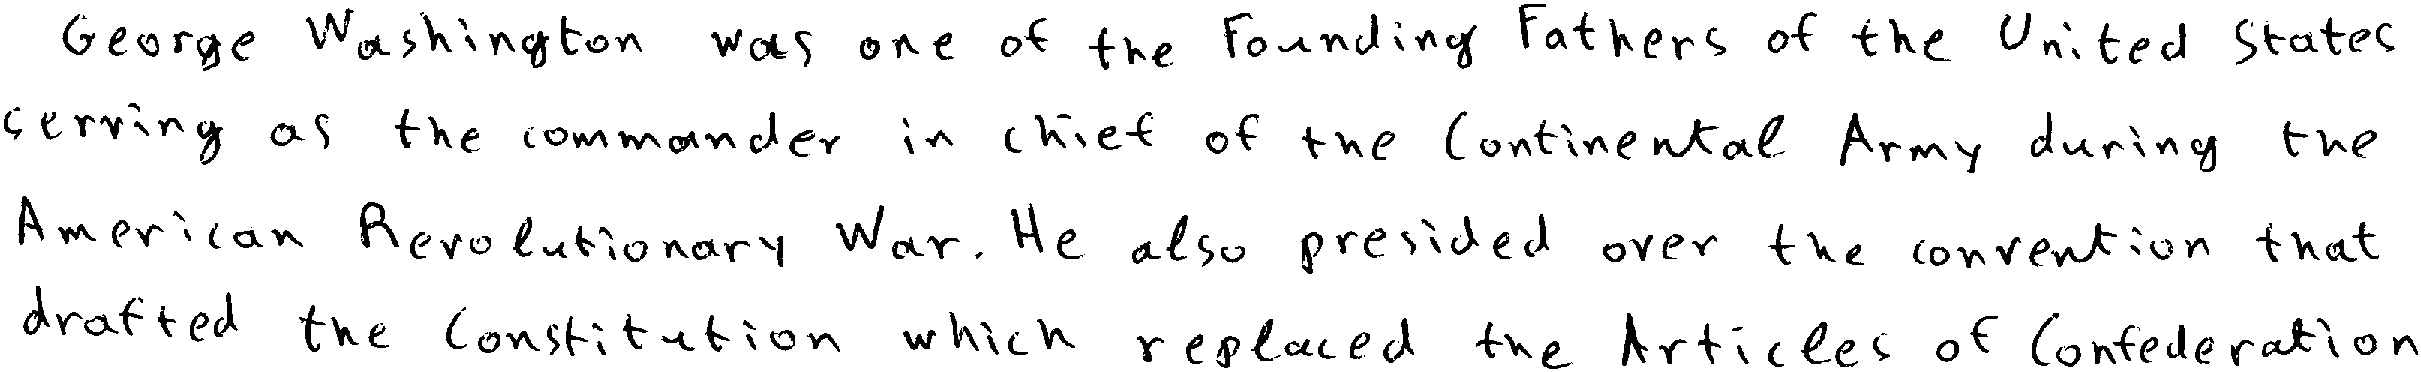 George Washington was one of the Founding Fathers of the United States
serving as the commander in chief of the Continental Army during the
American Revolutionary War. He also presided over the convention that
drafted the Constitution which replaced the Articles of Confederation